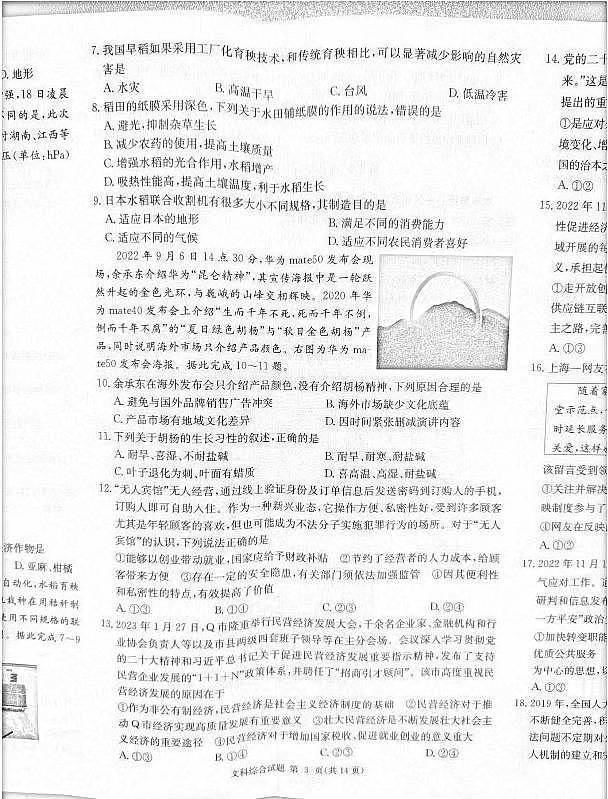 7. 我国早稻如果采用工厂化育秧技术,和传统育秧相比,可以显著减少影响的自然灾
害是
A. 水灾 B. 高温干旱 C. 台风 D. 低温冷害
8. 稻田的纸膜采用深色,下列关于水田铺纸膜的作用的说法,错误的是
A. 避光,抑制杂草生长
B. 减少农药的使用,提高土壤质量
C. 增强水稻的光合作用,水稻增产
D. 吸热性能高,提高土壤温度,利于水稻生长
9. 日本水稻联合收割机有很多大小不同规格,其制造目的是
A. 适应日本的地形 B. 满足不同的消费能力
C. 适应不同的气候 D. 适应不同农民消费者喜好
2022 年 9 月 6 日 14 点 30 分,华为 mate50 发布会现
场,余承东介绍华为“昆仑精神”,其宣传海报中是一轮跃
然升起的金色光环,与巍峨的山峰交相辉映。2020 年华
为 mate40 发布会上介绍“生而千年不死,死而千年不倒,
倒而千年不腐”的“夏日绿色胡杨”与“秋日金色胡杨”产
品,同时说明海外市场只介绍产品颜色。右图为华为 ma-
te50 发布会海报。据此完成 10～11 题。
10. 余承东在海外发布会只介绍产品颜色,没有介绍胡杨精神,下列原因合理的是
A. 避免与国外品牌销售广告冲突 B. 海外市场缺少文化底蕴
C. 产品市场有地域文化差异 D. 因时间紧张删减演讲内容
11. 下列关于胡杨的生长习性的叙述,正确的是
A. 耐旱、喜湿、不耐盐碱 B. 耐旱、耐寒、耐盐碱
C. 叶子退化为刺、叶面有蜡质 D. 喜高温、高湿、耐盐碱
12. “无人宾馆”无人经营,通过线上验证身份及订单信息后发送密码到订购人的手机,
订购人即可自助入住。作为一种新兴业态,它操作方便、私密性好,受到许多顾客
尤其是年轻顾客的喜欢,但也可能成为不法分子实施犯罪行为的场所。对于“无人
宾馆”的认识,下列说法正确的是
①能够以创业带动就业,国家应给予财政补贴 ②节约了经营者的人力成本,给顾
客带来方便 ③存在一定的安全隐患,有关部门须依法加强监管 ④因其便利性
和私密性的特点,有效提高了价值
A. ①③ B. ①④ C. ②③ D. ②④
13. 2023 年 1 月 27 日,Q 市隆重举行民营经济发展大会,千余名企业家、金融机构和行
业协会负责人等以及市县两级四套班子领导等在主分会场。会议深入学习贯彻党
的二十大精神和习近平总书记关于促进民营经济发展重要指示精神,发布了支持
民营企业发展的“1+1+N”政策体系,并聘任了“招商引才顾问”。该市高度重视民
营经济发展的原因在于
①作为非公有制经济,民营经济是社会主义经济制度的基础 ②民营经济对于推
动 Q 市经济实现高质量发展有重要意义 ③壮大民营经济是不断发展壮大社会主
义经济的重要途径 ④民营经济对于增加国家税收、促进就业创业的意义重大
A. ①③ B. ①④ C. ②③ D. ②④
文科综合试题 第 3 页(共 14 页)
D. 地形
强,18 日凌晨
不同的是,此次
湖南、江西等
压(单位:hPa)
济作物是
D. 亚麻、柑橘
自动化,水稻育秧
机栽种在用秸秆制
使用不同规格的联
据此完成 7～9
14. 党的二十
来。”这是
提出的重
①是应对
境变化、增
国的治本之
A. ①②
15. 2022 年 11
性促进经济
域开展的每
义,承担起
①走开放创
供应链互联
主之路,完善
A. ①③
16. 上海一网友
随着家
堂示范点,
时延长服务
关爱,这样好
该留言受到领
①关注并解决
映制度参与了
④网友在反映
A. ①②
17. 2022 年 11 月 1
气应对工作。通
研判和信息发布
一方平安”政治
①加快转变职能
优质公共服务
为中心的思想,
A. ①③
18. 2019 年,全国人大
不断健全完善,积
法问题不定期对
人机制的建立和完